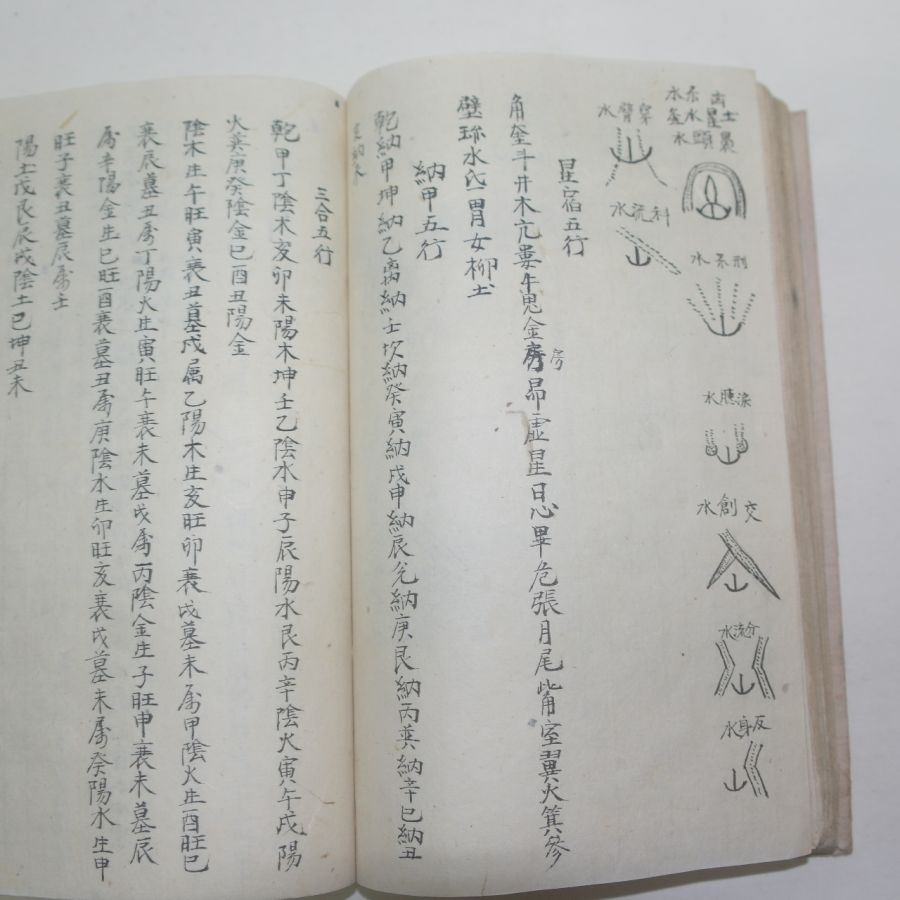 水頭裹
刑水
水聽淚
水創交
水流分
水身反
水臂穿
水流斜
星宿五行
角奎斗井木亢婁牛鬼金房昴虛星日心畢危張月尾觜室翼火箕參
壁珎水氐胃女柳土
納甲五行
乾納甲坤納乙离納壬坎納癸寅納戌申納辰兌納庚艮納丙巽納辛巳納丑
亥納未
三合五行
乾甲丁陰木亥卯未陽木坤壬乙陰水申子辰陽水艮丙辛陰火寅午戌陽
火巽庚癸陰金巳酉丑陽金
陰木生午旺寅衰丑墓戌属乙陽木生亥旺卯衰戌墓未属甲陰火生酉旺巳
衰辰墓丑属丁陽火生寅旺午衰未墓戌属丙陰金生子旺申衰未墓辰
属辛陽金生巳旺酉衰墓丑属庚陰水生卯旺亥衰戌墓未属癸陽水生申
旺子衰丑墓辰属壬
陽土戊艮辰戌陰土己坤丑未